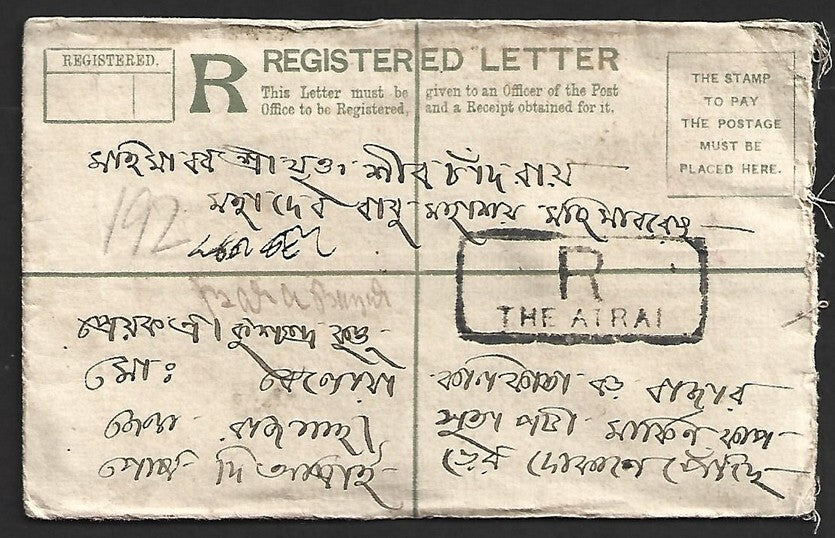 REGISTERED.
R
REGISTERED LETTER
This Letter must be given to an Officer of the Post
Office to be Registered, and a Receipt obtained for it.
THE STAMP
TO PAY
THE POSTAGE
MUST BE
PLACED HERE.
মহিমাবর শ্রীযুক্ত শীব চাঁদ রায়
মহাদেব বাবু মহাশয় মহিমাবরেষু
192
R
THE ATRAI
প্রেরক শ্রী কুণ্ডু
মোঃ
জেলা রাজসাহী
পোষ্ট দি আত্রাই
কলিকাতা বড় বাজার
সুতা পটী মার্কিন কাপ-
ড়ের দোকানে পৌঁছে